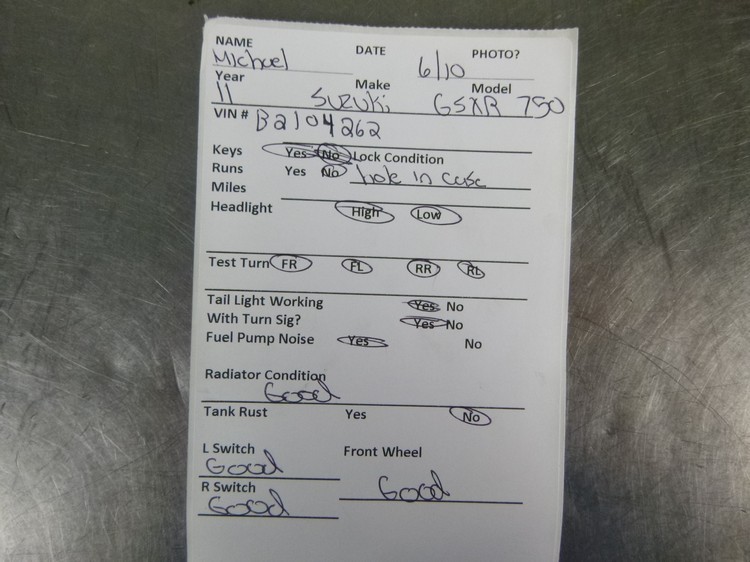 NAME DATE PHOTO?
Michael 6/10
Year Make Model
11 Suzuki GSXR 750
VIN # B2104262
Keys Yes No Lock Condition
Runs Yes No hole in case
Miles
Headlight High Low
Test Turn FR FL RR RL
Tail Light Working Yes No
With Turn Sig? Yes No
Fuel Pump Noise Yes No
Radiator Condition
Good
Tank Rust Yes No
L Switch Front Wheel
Good
R Switch Good
Good